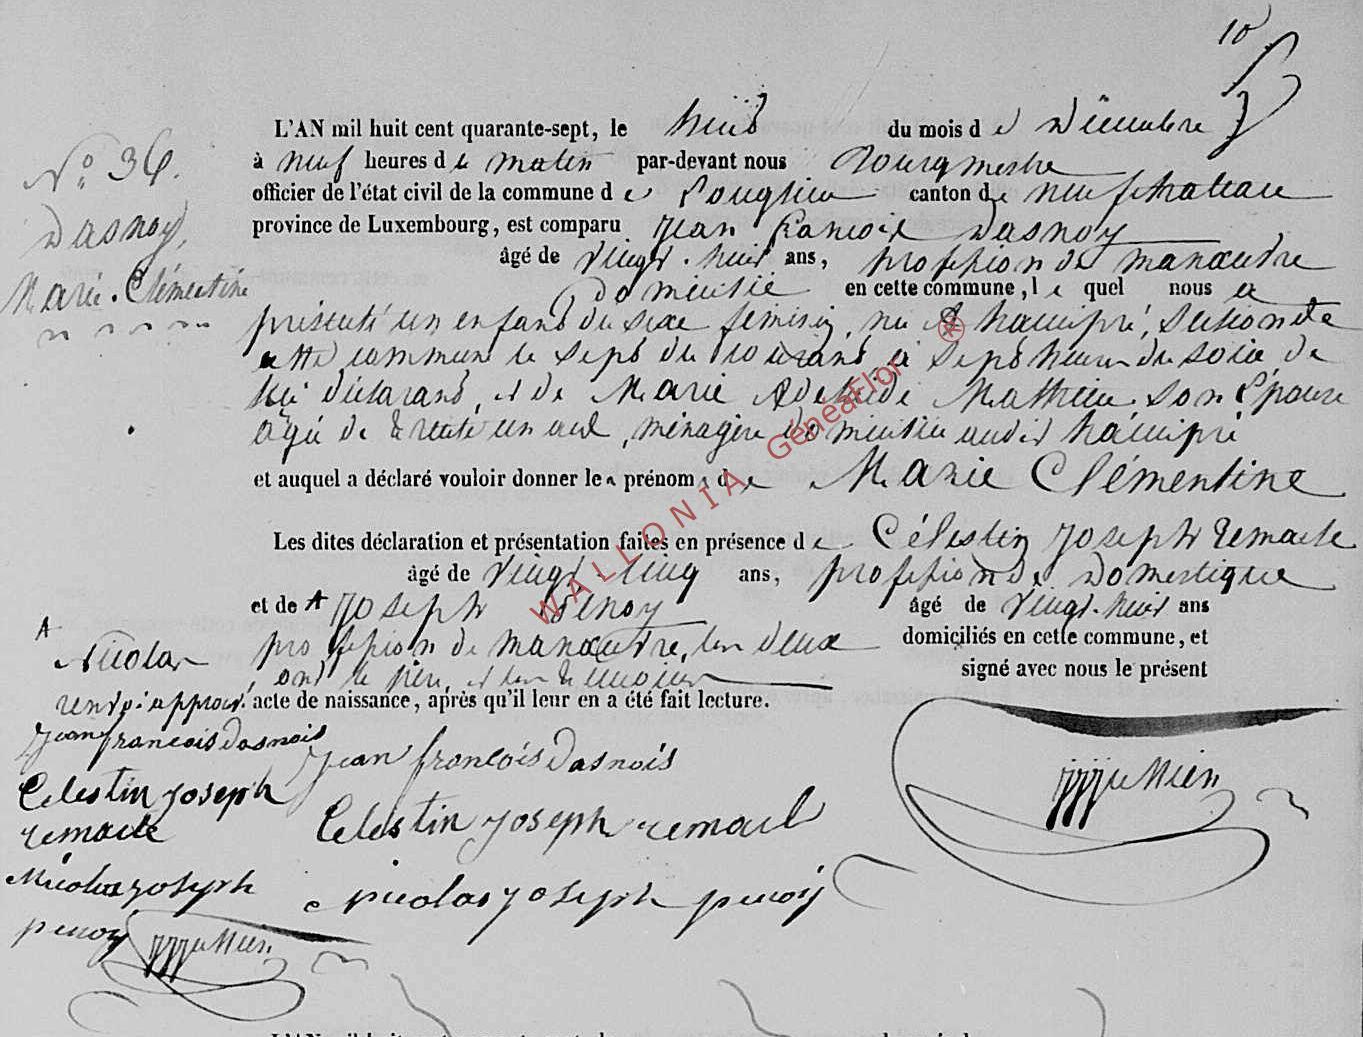 10
L'AN mil huit cent quarante-sept, le huit du mois d e Décembre
à neuf heures d u matin par-devant nous Bourgmestre
officier de l'état civil de la commune d e Longlier canton de neufchateau
province de Luxembourg, est comparu Jean François Dasnoy
âgé de vingt-huit ans, profession de manœuvre
domicilié en cette commune, le quel nous a
présenté un enfant du sexe féminin, né à hamipré, section de
cette commune le sept du courant à sept heures du soir de
lui déclarant, et de Marie Adelaïde Mathieu son Epouse
agée de trente un ans, ménagère domiciliée audit hamipré
et auquel a déclaré vouloir donner les prénoms de Marie Clémentine
Les dites déclaration et présentation faites en présence de Célestin Joseph Remacle
âgé de vingt-cinq ans, profession de Domestique
et de A Joseph Penoy âgé de vingt-huit ans
profession de manœuvre, les deux domiciliés en cette commune, et
ont le père, et les témoins signé avec nous le présent
acte de naissance, après qu'il leur en a été fait lecture.
N° 36.
Dasnoy,
Marie-Clémentine
A
Nicolas
renvoi approuvé
jean francois dasnois
Celestin joseph
remacle
Nicolas joseph
penoy
jean françois dasnois
Celestin joseph remacle
nicolas joseph penoy
WALLONIA GénéaFlor ®
L'AN mil huit cent quarante-sept